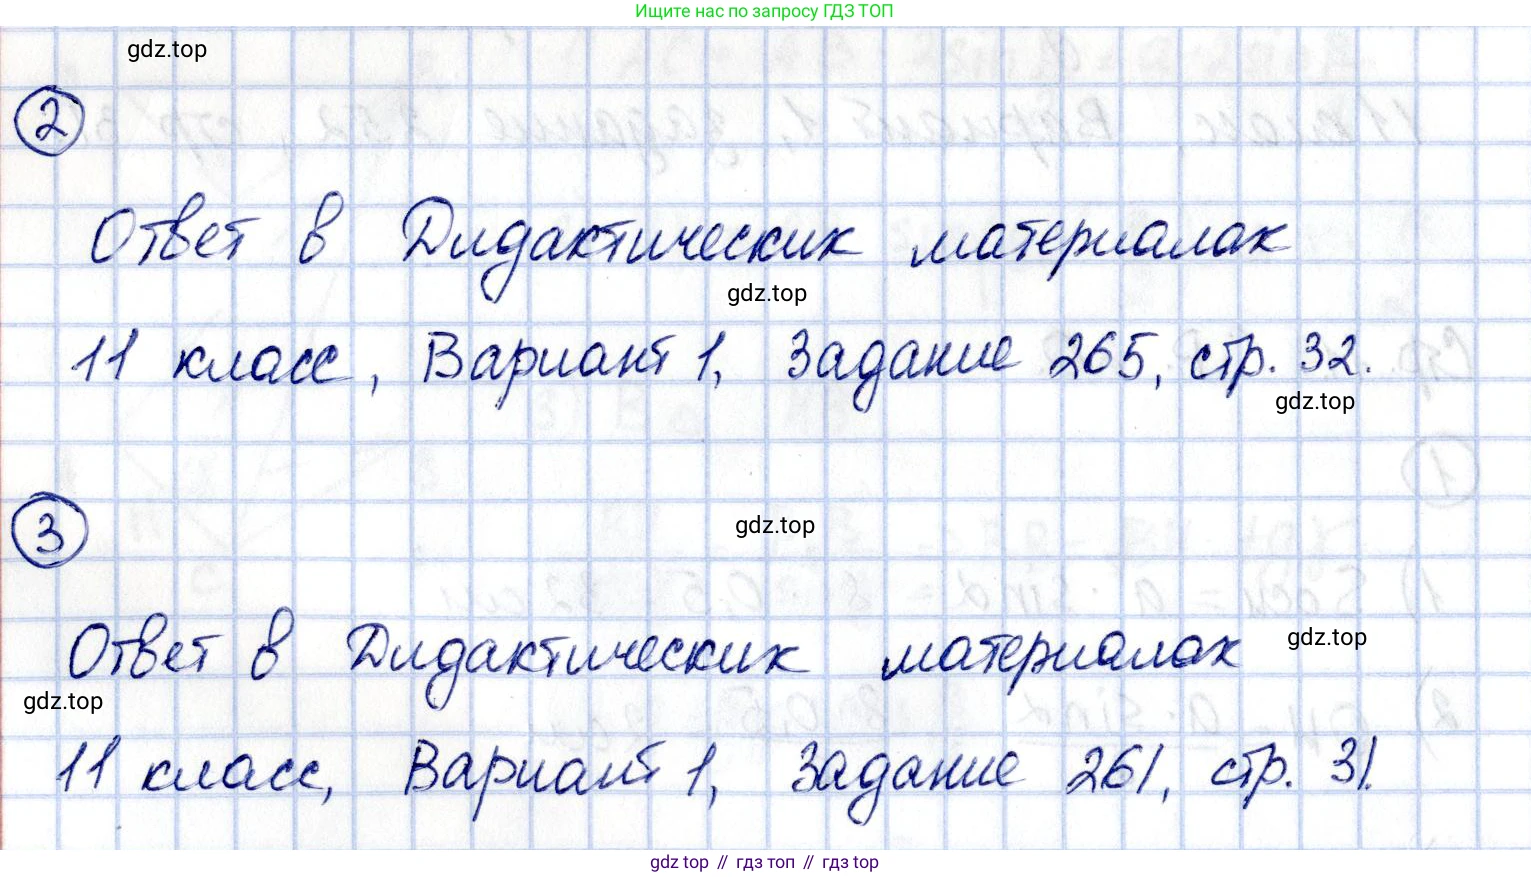 Ищите нас по запросу ГДЗ ТОП
gdz.top
2
Ответ в Дидактических материалах
gdz.top
11 класс, Вариант 1, Задание 265, стр. 32.
gdz.top
3
gdz.top
Ответ в Дидактических материалах
gdz.top
gdz.top
11 класс, Вариант 1, Задание 261, стр. 31.
gdz top // гдз топ // гдз top